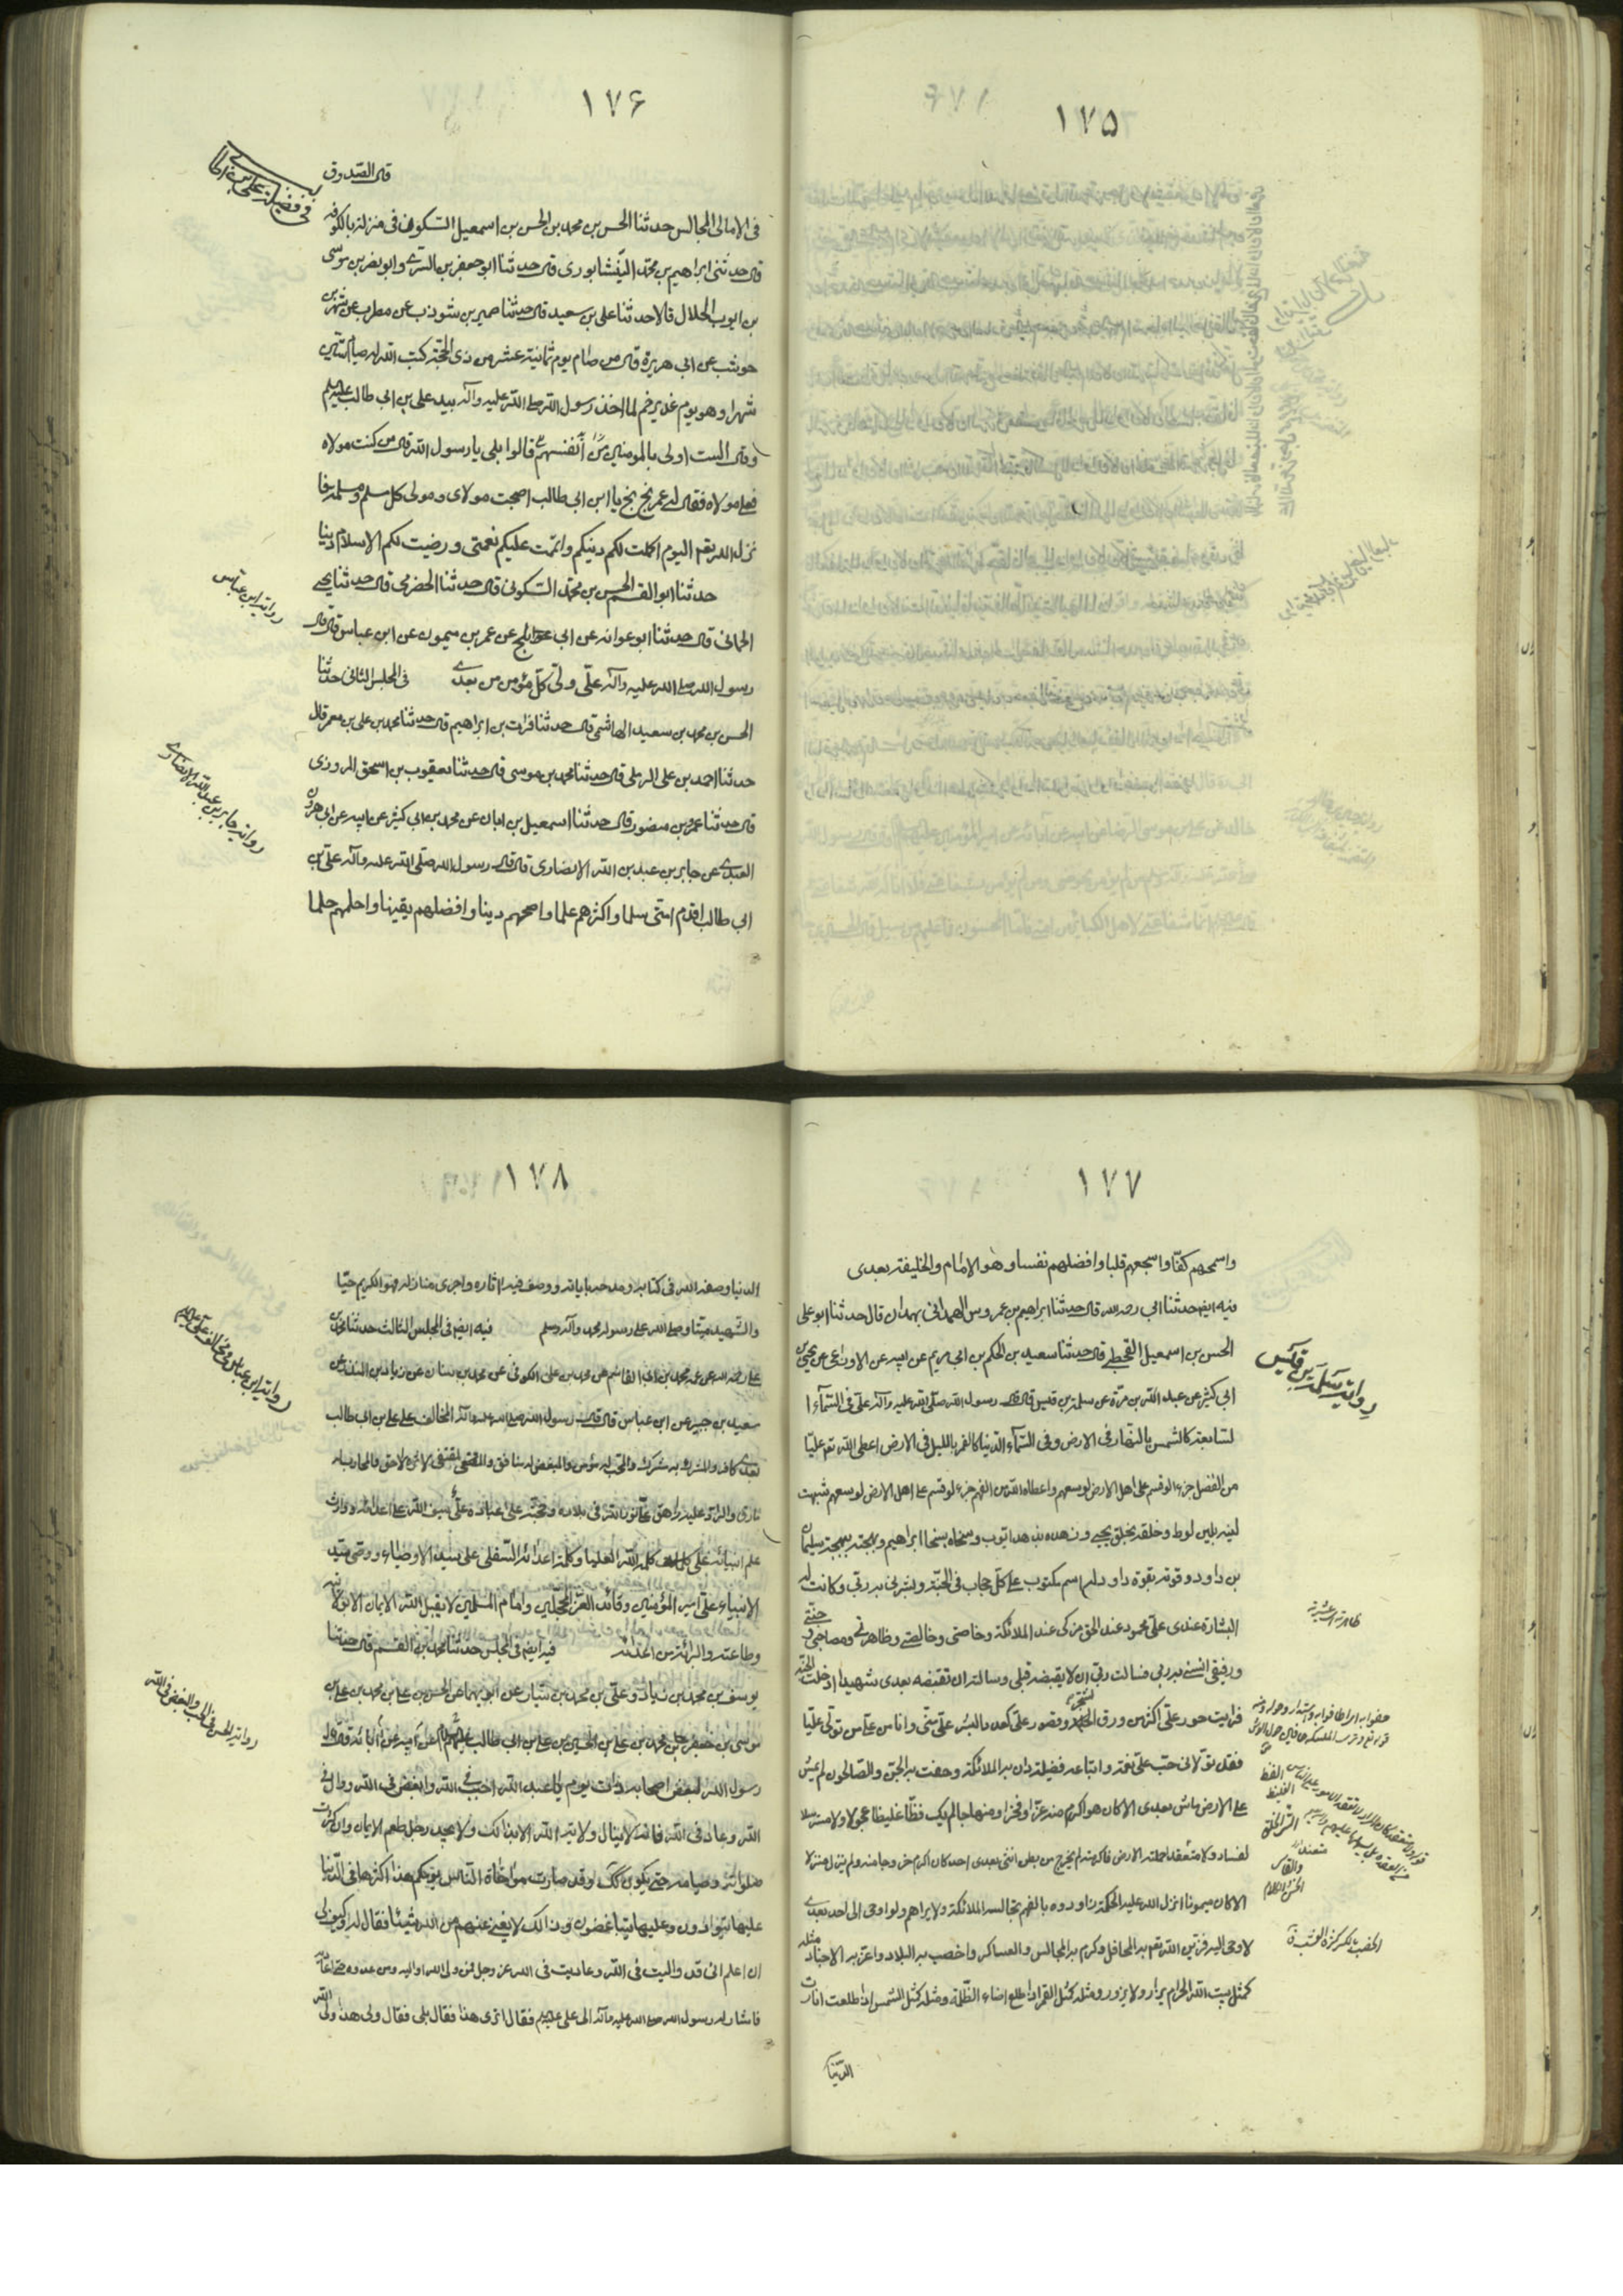 ١٧٥
١٧۶
فی فضیلة علی بن ابیطالب
قال الصدوق
فی الامالی المجالس حدثنا الحسن بن محمد بن الحسن بن اسمعیل السکونی فی منزله بالکوفة
قال حدثنی ابراهیم بن محمد النیشابوری قال حدثنا ابو جعفر بن السری وابو نصر بن موسی
بن ایوب الخلال قالا حدثنا علی بن سعید قال حدثنا ضمیر بن شوذب عن مطر عن شهر بن
حوشب عن ابی هریرة قال من صام یوم ثمانیة عشر من ذی الحجة کتب الله له صیام ستین
شهرا وهو یوم غدیر خم لما اخذ رسول الله صلی الله علیه وآله بید علی بن ابی طالب علیه السلم
وقال الست اولی بالمومنین من انفسهم قالوا بلی یا رسول الله قال من کنت مولاه
فعلی مولاه فقال له عمر بخ بخ یا ابن ابی طالب اصبحت مولای ومولی کل مسلم ومسلمة فا
نزل الله تعم الیوم اکملت لکم دینکم واتممت علیکم نعمتی ورضیت لکم الاسلام دینا
حدثنا ابو القسم الحسن بن محمد السکونی قال حدثنا الحضرمی قال حدثنا یحیی
روایة ابن عباس
الحمانی قال حدثنا ابو عوانه عن ابی بلج عن عمر بن میمون عن ابن عباس قال قال
رسول الله صلی الله علیه وآله علی ولی کل مؤمن من بعدی فی المجلس الثانی حدثنا
الحسن بن محمد بن سعید الهاشمی قال حدثنا فرات بن ابراهیم قال حدثنا محمد بن علی بن معمر قال
روایة جابر بن عبد الله الانصاری
حدثنا احمد بن علی الرملی قال حدثنا محمد بن موسی قال حدثنا یعقوب بن اسحق المروزی
قال حدثنا عمرو بن منصور قال حدثنا اسمعیل بن ابان عن محمد بن ابی کثیر عن ابیه عن ابی هرون
العبدی عن جابر بن عبد بن الله الانصاری قال قال رسول الله صلی الله علیه وآله علی بن
ابی طالب اقدم امتی سلما واکثرهم علما واصحهم دینا وافضلهم یقینا واحلمهم حلما
١٧٧
واسمحهم کفّا واشجعهم قلبا وافضلهم نفسا وهو الامام والخلیفة بعدی
فیه ایضا حدثنا ابی رحمه الله قال حدثنا ابراهیم بن عمروس الهمدانی بهمدان قال حدثنا ابو علی
الحسن بن اسمعیل القحطبی قال حدثنا سعید بن الحکم بن ابی مریم عن ابیه عن الاوزاعی عن یحیی بن
روایة سلمة بن قیس
ابی کثیر عن عبد الله بن مرة عن سلمة بن قیس قال قال رسول الله صلی الله علیه وآله علی فی السماء ا
لسابعة کالشمس بالنهار فی الارض وفی السماء الدنیا کالقمر باللیل فی الارض اعطی الله تعم علیا
من الفضل جزء لو قسم علی اهل الارض لوسعهم واعطاه الله من الفهم جزء لو قسم علی اهل الارض لوسعهم شبهت
لینه بلین لوط وخلقه بخلق یحیی وزهده بزهد ایوب وسخاه بسخا ابراهیم وبهجته ببهجة سلیمان
بن داود وقوته بقوة داود له اسم مکتوب علی کل حجاب فی الجنة وبشرنی به ربی وکانت له
البشارة عندی علی محمود عند الحق مزکی عند الملائکة وخاصتی وخالصتی وظاهرتی ومصباحی وجنتی
ورفیقی انسنی به ربی فسالت ربی ان لا یقبضه قبلی وسالته ان یقبضه بعدی شهیدا ادخلت الجنة
فرایت حور علی اکثر من ورق الشجر وقصور علی کعدد البشر علی منی وانا من علی من تولی علیا
فقد تولانی حب علی نعمة واتباعه فضیلة دان به الملائکة وحفت به الجن والصالحون لم یمش
علی الارض ماش بعدی الا کان هو اکرم منه عزا وفخرا ومنهاجا لم یک فظا غلیظا عجولا ولا مسترسلا
لفساد ولا متعقدا حملته الارض فاکرمته لم یخرج من بطن انثی بعدی احد کان اکرم خروجا منه ولم ینزل منزلا
الا کان میمونا انزل الله علیه الحکمة وداوده بالفهم تجالسه الملائکة ولا یراهم ولو اوحی الی احد بعدی
لاوحی الیه فزین الله تعم به المحافل واکرم به المجالس والعساکر واخصب به البلاد واعز به الاجناد مثله
کمثل بیت الله الحرام یزار ولا یزور ومثله کمثل القمر اذا طلع اضاء الظلمة ومثله کمثل الشمس اذا طلعت انارت
الدنیا
١٧٨
الدنیا وصفه الله فی کتابه ومدحه بایاته ووصف فیه اثاره واجری منازله فهو الکریم حیّا
والشهید میتا وصلی الله علی رسوله محمد وآله وسلم فیه ایضا فی المجلس الثالث حدثنا محمد بن
علی رحمه الله عن عمه محمد بن ابی القاسم عن محمد بن علی الکوفی عن محمد بن سنان عن زیاد بن المنذر عن
سعید بن جبیر عن ابن عباس قال قال رسول الله صلی الله علیه وآله المخالف علی علی بن ابی طالب
بعدی کافر والمشرک به مشرک والمحب له مؤمن والمبغض له منافق والمقتفی لاثره لاحق والمحارب له
مارق والراد علیه زاهق علی نور الله فی بلاده وحجته علی عباده علی سیف الله علی اعدائه ووارث
علم انبیائه علی کلمة الله العلیا وکلمة اعدائه السفلی علی سید الاوصیاء ووصی سید
الانبیاء علی امیر المؤمنین وقائد الغر المحجلین وامام المسلمین لا یقبل الله الایمان الا بولایته
وطاعته والبرائة من اعدائه فیه ایضا فی المجلس حدثنا محمد بن القسم قال حدثنا
یوسف بن محمد بن زیاد وعلی بن محمد بن سیار عن ابویهما عن الحسن بن علی بن محمد بن علی بن
موسی بن جعفر بن محمد بن علی بن الحسین بن علی بن ابی طالب علیهم السلم عن ابیه عن آبائه قال قال
رسول الله لبعض اصحابه ذات یوم یا عبد الله احبب فی الله وابغض فی الله ووال فی
الله وعاد فی الله فانه لا ینال ولایة الله الا بذالک ولا یجد رجل طعم الایمان وان کثرت
صلواته وصیامه حتی یکون کذلک وقد صارت مواخاة الناس یومکم هذا اکثرها فی الدنیا
علیها یتوادون وعلیها یتباغضون وذالک لا یغنی عنهم من الله شیئا فقال له وکیف لی
ان اعلم انی قد والیت فی الله وعادیت فی الله عز وجل فمن ولی الله اوالیه ومن عدوه حتی اعادیه
فاشار له رسول الله صلی الله علیه وآله الی علی علیه السلم فقال اتری هذا فقال بلی فقال ولی هذا ولی الله